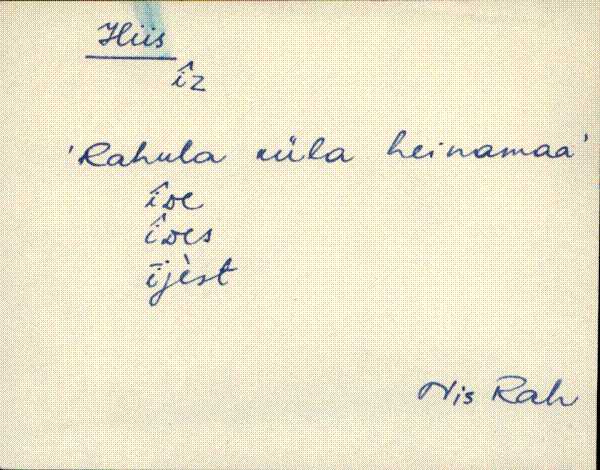 Hiis
îz
'Rahula küla heinamaa'
îde
îdes
ījèst
Nis Rah